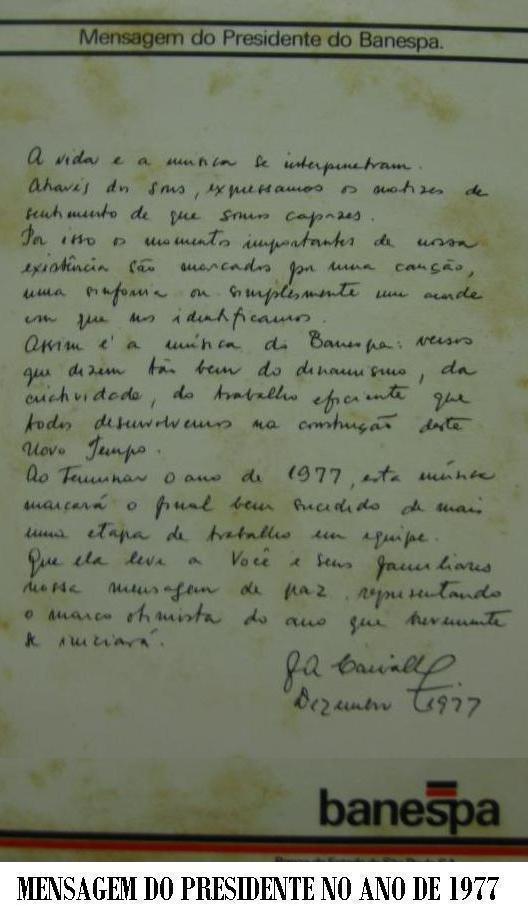 Mensagem do Presidente do Banespa.
A vida e a música se interpenetram.
Através dos sons, expressamos os matizes de
sentimento de que somos capazes.
Por isso os momentos importantes de nossa
existência são marcados por uma canção,
uma sinfonia ou simplesmente um acorde
em que nos identificamos.
Assim é a música do Banespa: versos
que dizem tão bem do dinamismo, da
criatividade, do trabalho eficiente que
todos desenvolvemos na construção deste
Novo Tempo.
Ao terminar o ano de 1977, esta música
marcará o final bem sucedido de mais
uma etapa de trabalho em equipe.
Que ela leve a Você e seus familiares
nossa mensagem de paz, representando
o marco otimista do ano que brevemente
se iniciará.
Dezembro 1977
banespa
MENSAGEM DO PRESIDENTE NO ANO DE 1977